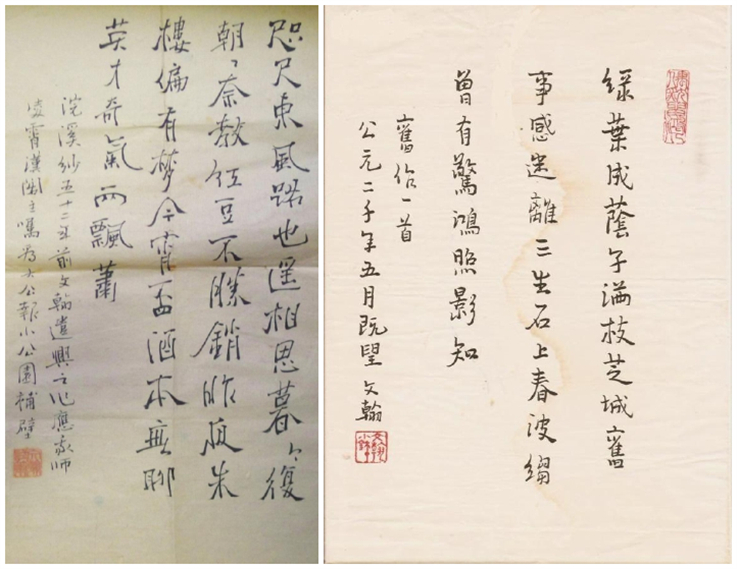 咫尺東風路也遥相思暮々復
朝々奈教紅豆不勝銷昨夜朱
樓偏有夢今宵盃酒本無聊
英才奇氣両飄蕭
浣溪紗五十二年前文翰遣興之作應敬師
凌霄漢閣主囑為大公報小公園補壁
綠葉成蔭子滿枝芝城舊
事感迷離三生石上春波縐
曾有驚鴻照影知
舊作一首
公元二千年五月既望文翰